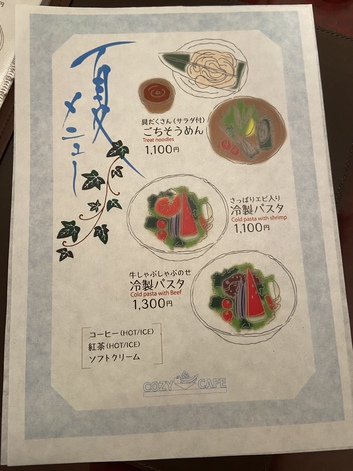 夏
メニュー
具だくさん(サラダ付)
ごちそうめん
Treat noodles
1,100円
さっぱりエビ入り
冷製パスタ
Cold pasta with shrimp
1,100円
牛しゃぶしゃぶのせ
冷製パスタ
Cold pasta with Beef
1,300円
コーヒー(HOT/ICE)
紅茶(HOT/ICE)
ソフトクリーム
COZY CAFE